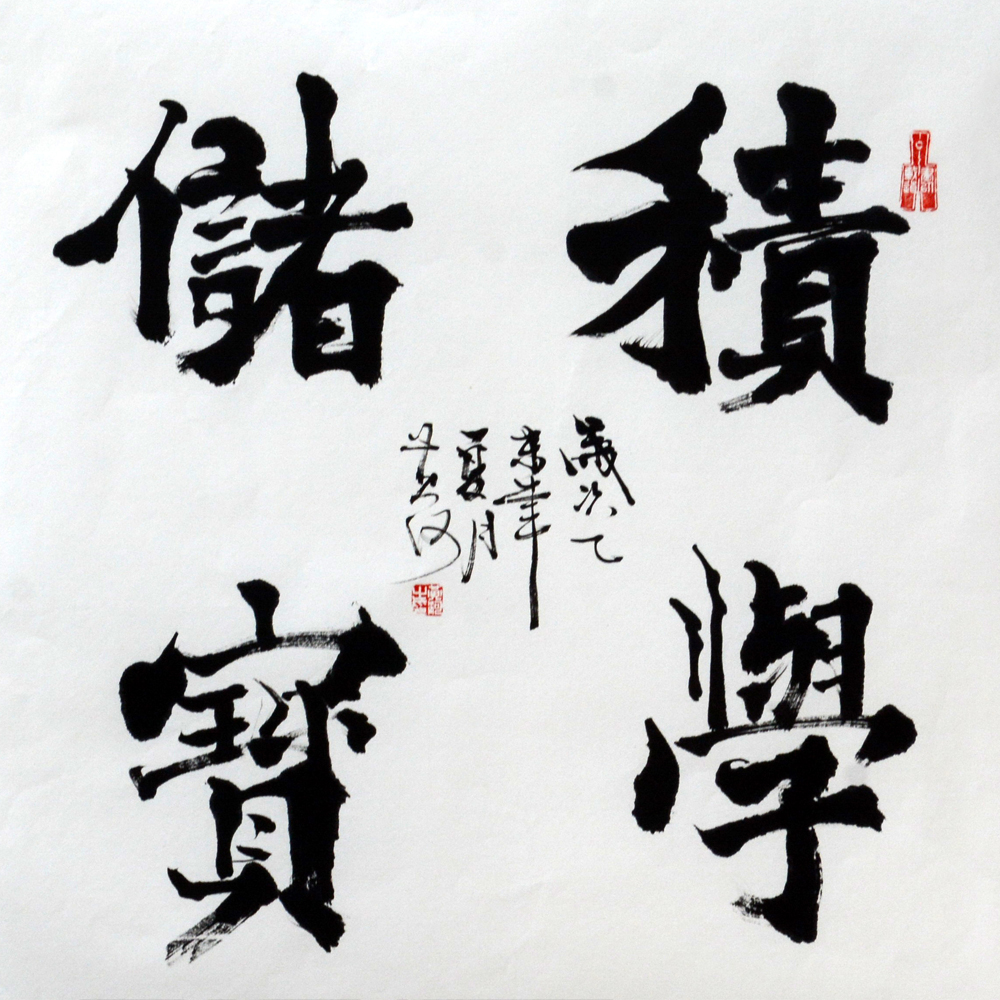 積學
儲寶
歲次乙
未年
夏月